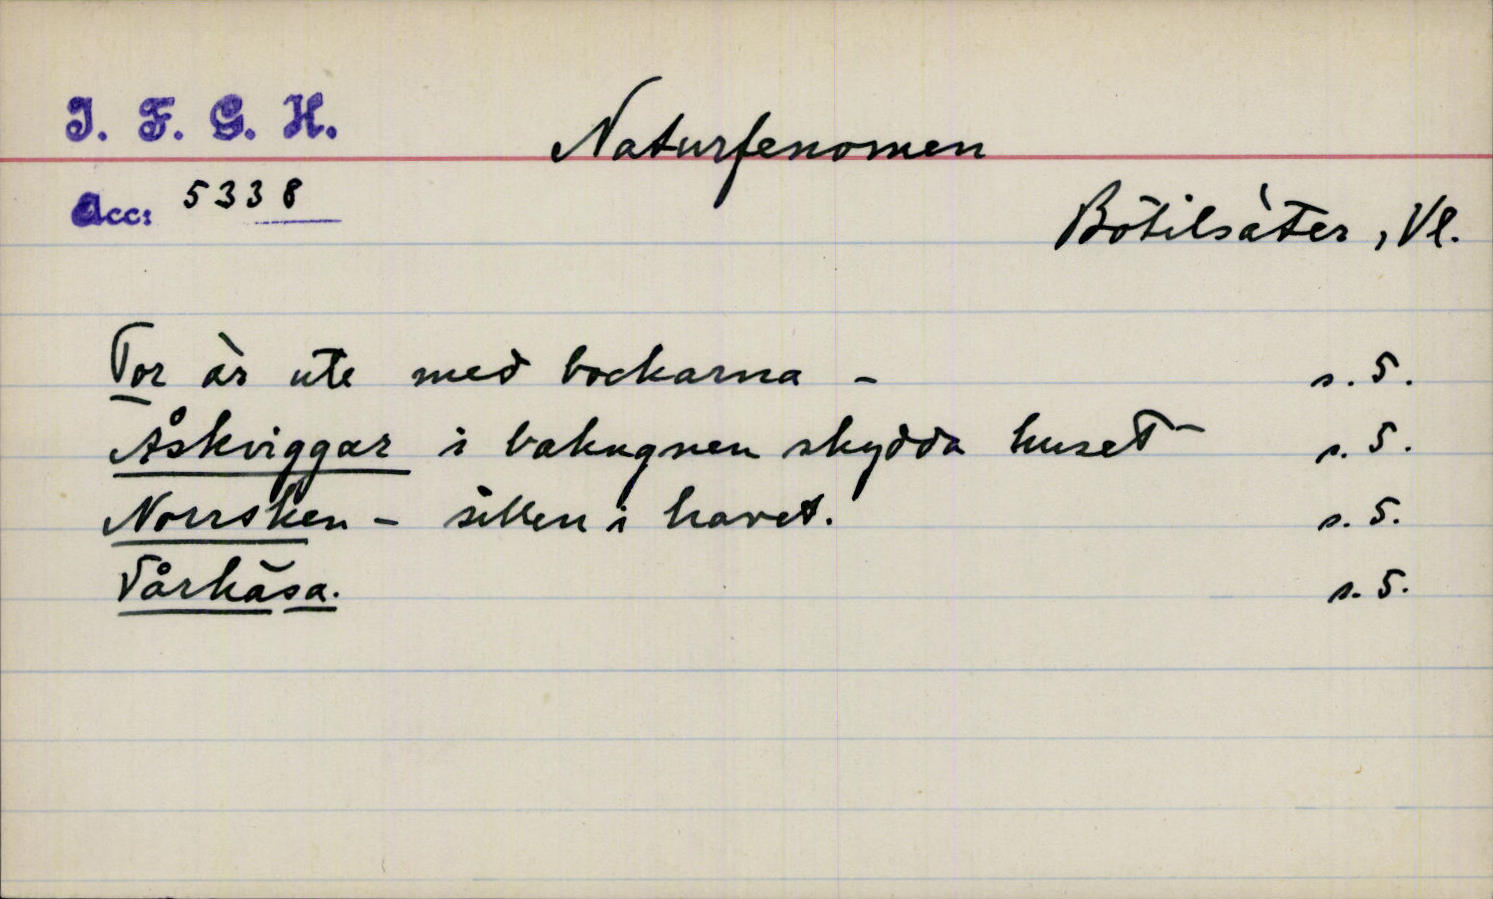 I. F. G. H.
Naturfenomen
Acc: 5338
Bötilsäter, Vl.
Tor är ute med bockarna - s. 5.
Åskviggar i bakugnen skydda huset - s. 5.
Norrsken - sillen i havet. s. 5.
Vårkåsa. s. 5.